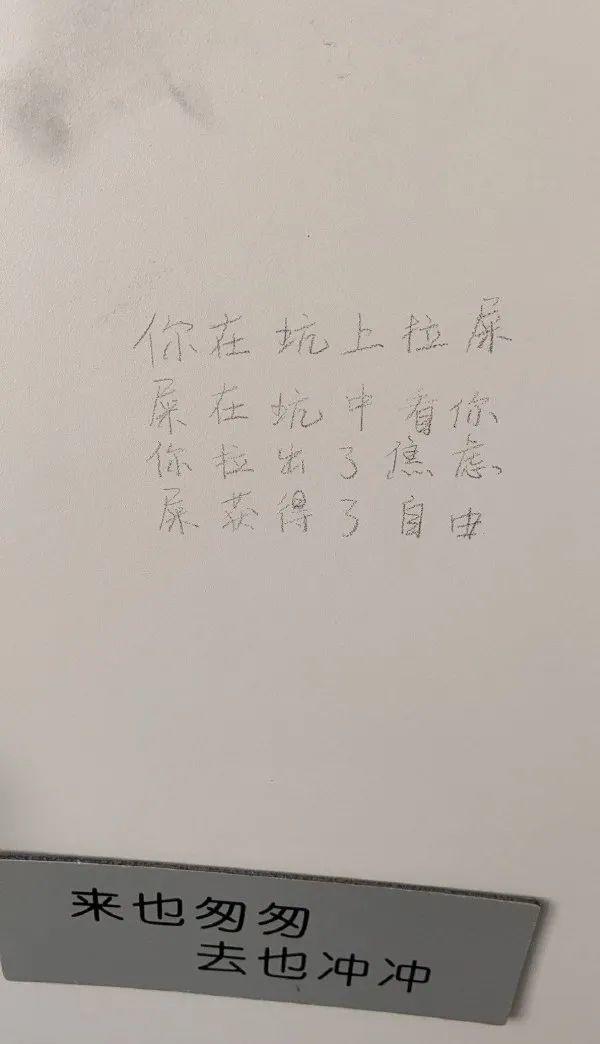 你在坑上拉屎
屎在坑中看你
你拉出了焦虑
屎获得了自由
来也匆匆
去也冲冲